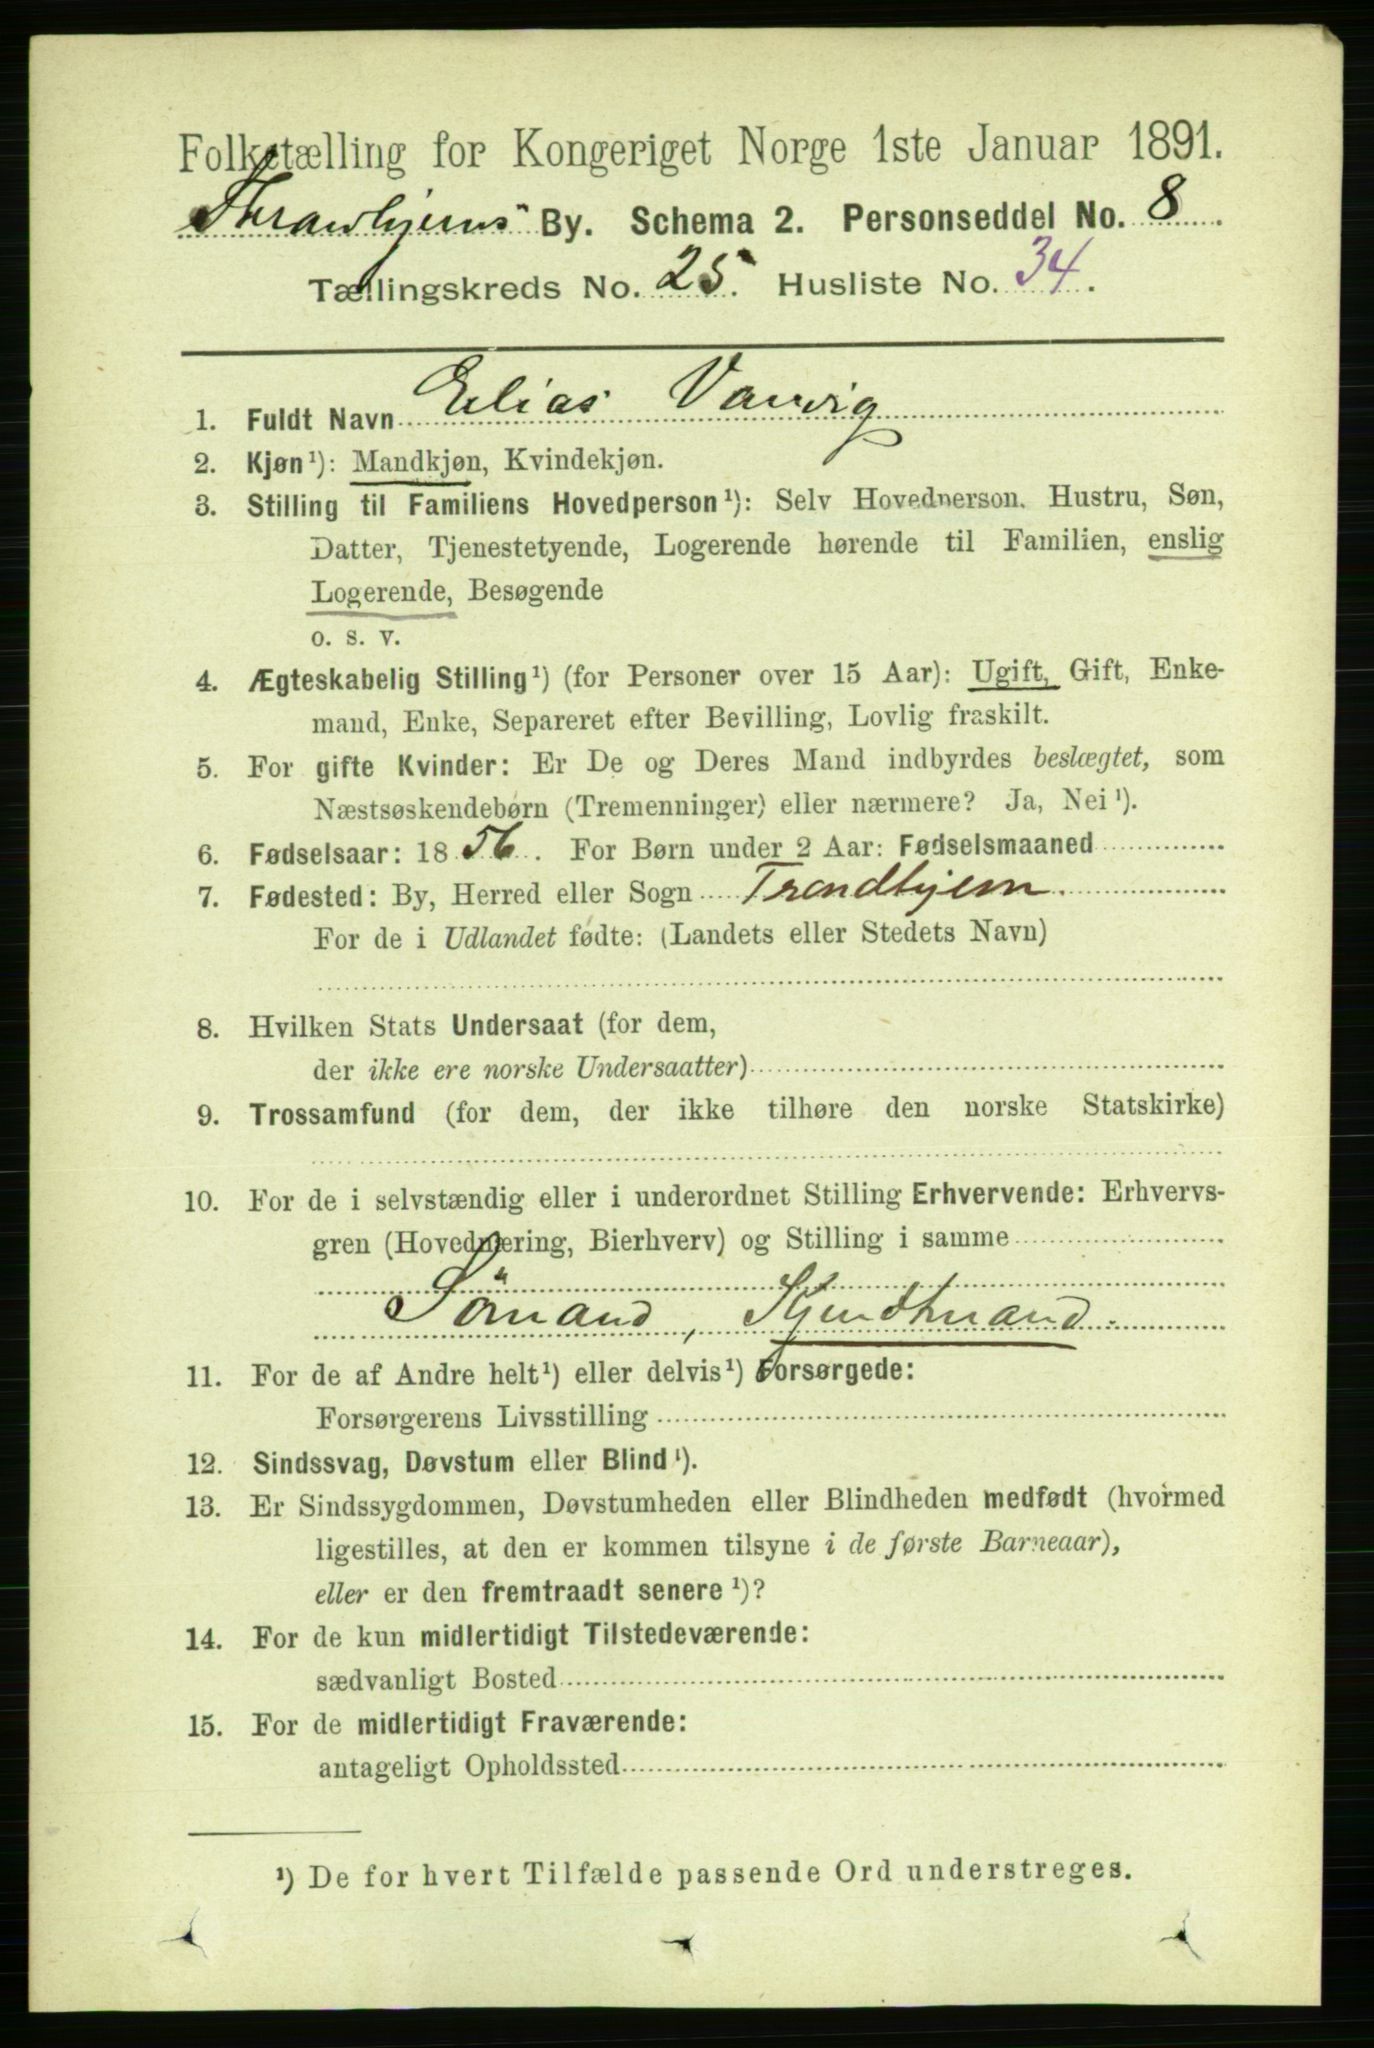 Folketælling for Kongeriget Norge 1ste Januar 1891.
Thrandhjems By. Schema 2. Personseddel No. 8.
Tællingskreds No. 25. Husliste No. 34.
1. Fuldt Navn Elias
2. Kjøn¹): Mandkjøn, Kvindekjøn.
3. Stilling til Familiens Hovedperson¹): Selv Hovedperson, Hustru, Søn,
Datter, Tjenestetyende, Logerende hørende til Familien, enslig
Logerende, Besøgende
o. s. v.
4. Ægteskabelig Stilling¹) (for Personer over 15 Aar): Ugift, Gift, Enke-
mand, Enke, Separeret efter Bevilling, Lovlig fraskilt.
5. For gifte Kvinder: Er De og Deres Mand indbyrdes beslægtet, som
Næstsøskendebørn (Tremenninger) eller nærmere? Ja, Nei¹).
6. Fødselsaar: 1856. For Børn under 2 Aar: Fødselsmaaned
7. Fødested: By, Herred eller Sogn Trondhjem.
For de i Udlandet fødte: (Landets eller Stedets Navn)
8. Hvilken Stats Undersaat (for dem,
der ikke ere norske Undersaatter)
9. Trossamfund (for dem, der ikke tilhøre den norske Statskirke)
10. For de i selvstændig eller i underordnet Stilling Erhvervende: Erhvervs-
gren (Hovednæring, Bierhverv) og Stilling i samme
Sömand,
11. For de af Andre helt¹) eller delvis¹) Forsørgede:
Forsørgerens Livsstilling
12. Sindssvag, Døvstum eller Blind¹).
13. Er Sindssygdommen, Døvstumheden eller Blindheden medfødt (hvormed
ligestilles, at den er kommen tilsyne i de første Barneaar),
eller er den fremtraadt senere¹)?
14. For de kun midlertidigt Tilstedeværende:
sædvanligt Bosted
15. For de midlertidigt Fraværende:
antageligt Opholdssted
¹) De for hvert Tilfælde passende Ord understreges.